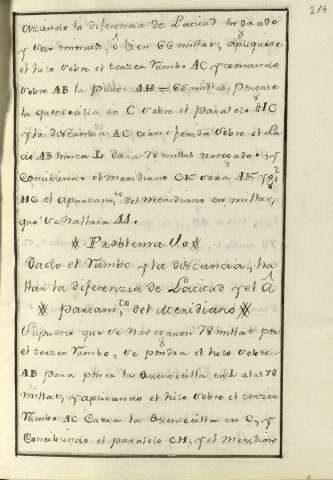 214
auiendo la diferencia de Latitud un grado
y seis minutos, o bien 66 millas, apliquese
el hilo sobre el tercer Rumbo AC y tomando
sobre AB la parte AH = 66 millas, pongase
la quentecilla en C sobre el paralelo HC
y la distancia AC transferida sobre el La
do AB hasta L dara 78 millas
Concibiendo el meridiano CK sera AK
HC el Apartam.to del Meridiano en millas,
que se hallara 44.
Problema Vo
Dado el Rumbo y la distancia, ha
llar la diferenzia de Latitud y el A
partam.to del Meridiano
Supuesto que se navegaron 78 millas por
el tercer Rumbo, se pondra el hilo sobre
AB para poner la quentecilla en L a las 78
millas, y aplicando el hilo sobre el tercer
Rumbo AC Caera la quentecilla en C, y
Concibiendo el paralelo CH, y el Meridiano